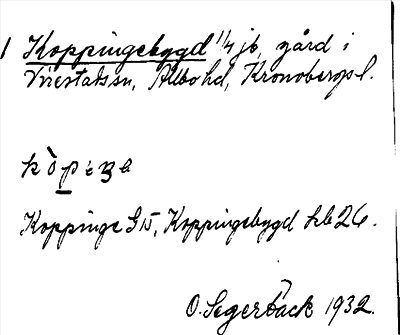 1 Koppingebygd 1/4 jb, gård i
Virestads sn, Allbo hd, Kronobergs l.
Koppinge G15, Koppingebygd hb 26.
O. Segerback 1932.